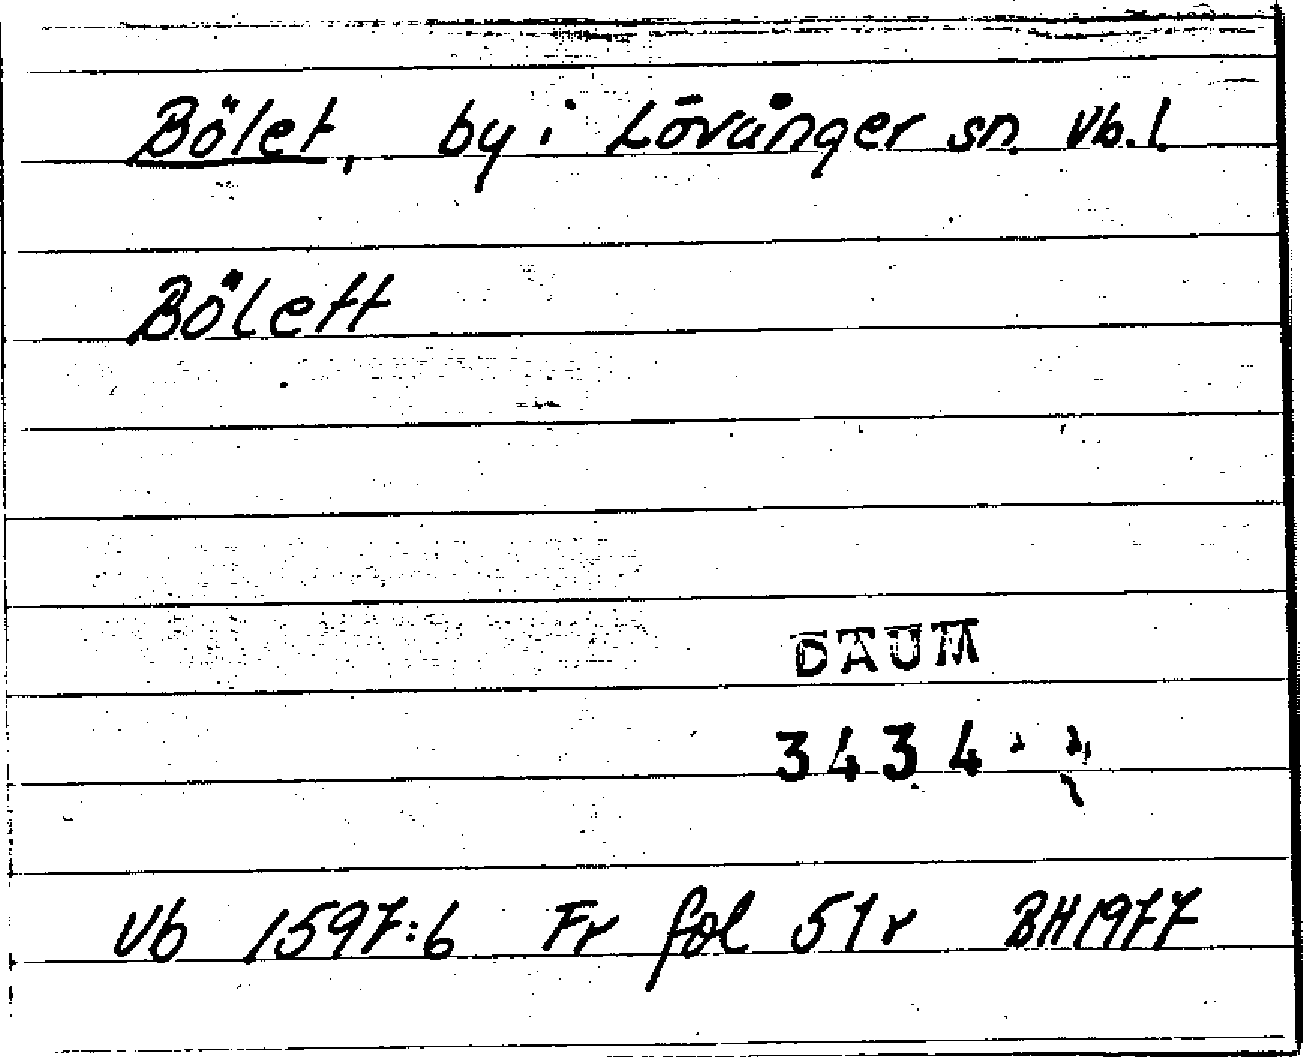 Bölet, by i Lövånger sn. Vb.l.
Bölett
DAUM
3434
Vb 1597:6 Fr fol 51r BH1977